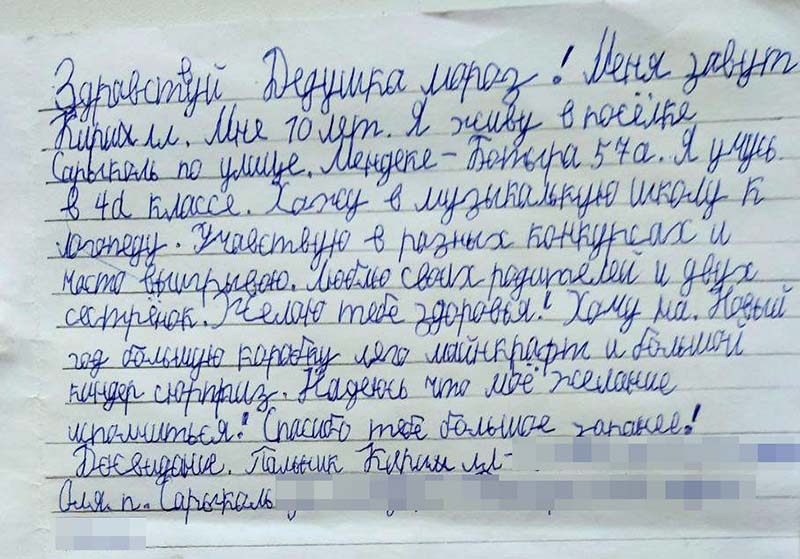 Здравствуй Дедушка мороз! Меня завут
Кирилл. Мне 10 лет. Я живу в посёлке
Сарыколь по улице. Мендеке-Батыра 57а. Я учусь
в 4d классе. Хажу в музыкальную школу к
логопеду. Учавствую в разных конкурсах и
часто выигрываю. Люблю своих родителей и двух
сестрёнок. Желаю тебе здоровья! Хочу на. Новый
год большую коробку лего майнкрафт и большой
киндер сюрприз. Надеюсь что моё желание
исполниться! Спасибо тебе большое заранее!
Досвидание. Пальчик Кирилл
Оля. п. Сарыколь